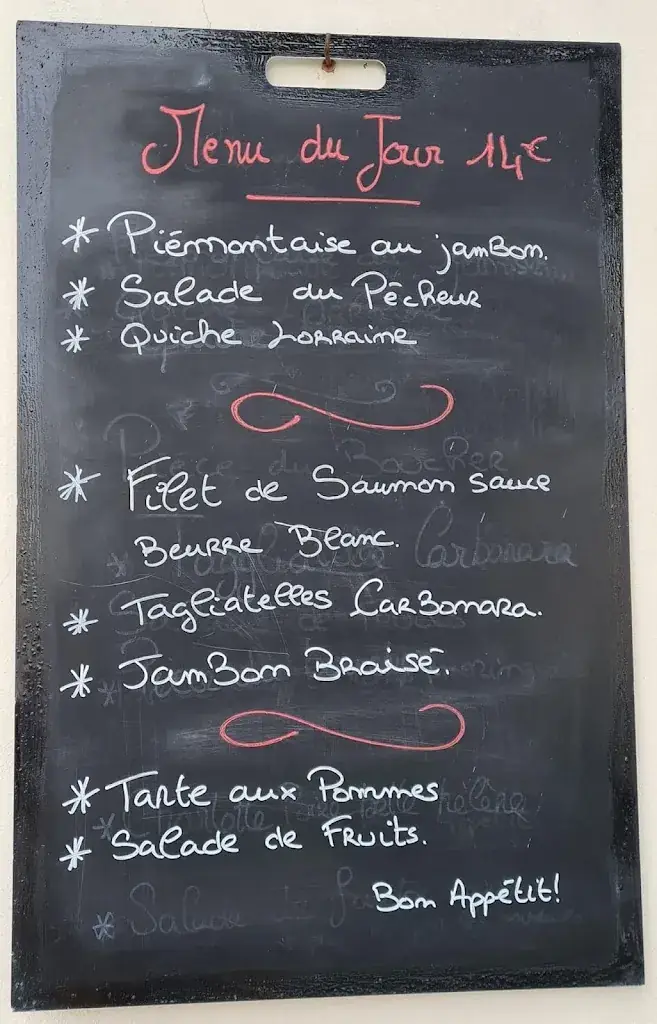 Menu du Jour 14€
* Piémontaise au jambon.
* Salade du Pêcheur
* Quiche Lorraine
* Filet de Saumon sauce
Beurre Blanc.
* Tagliatelles Carbonara.
* Jambon Braisé.
* Tarte aux Pommes
* Salade de Fruits.
Bon Appétit!